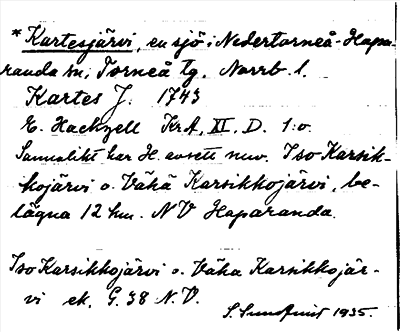 * Kartesjärvi, en sjö i Nedertorneå-Hapa-
randa sn, Torneå tg. Norrb. l.
Kartes J. 1743
E. Hackzell KrA, XI. D. 1:o.
Sannolikt har H. avsett nuv. Iso Karsik-
kojärvi o. Vähä Karsikkojärvi, be-
lägna 12 km. NV Haparanda.
Iso Karsikkojärvi o. Vähä Karsikkojär-
vi ek. G. 38 N.V.
S. Sundquist 1935.